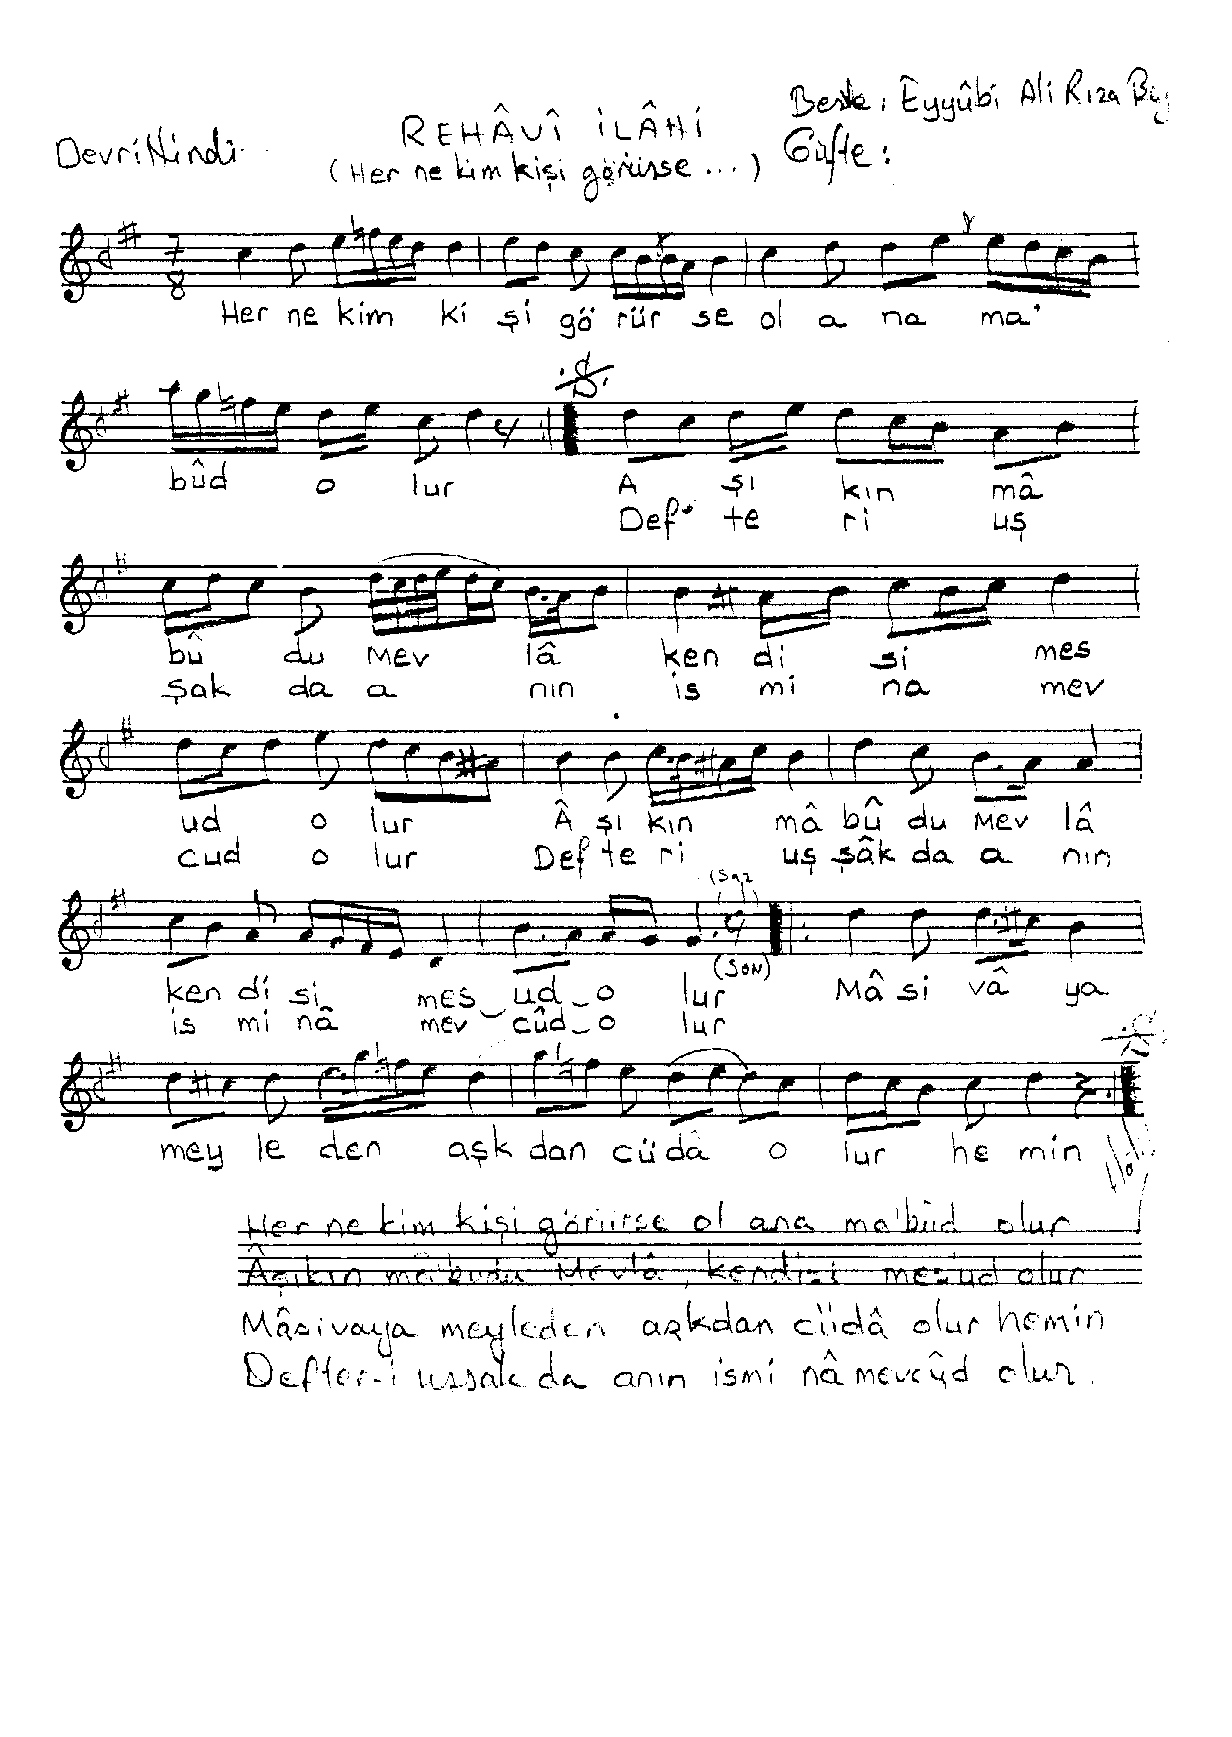 Beste : Eyyûbi Ali Rıza Bey
REHÂVÎ İLÂHİ
Devri Hindî
Güfte :
(Her ne kim kişi görürse ...)
7
8
Her ne kim ki şi gö rür se ol a na ma'
bûd o lur A şı kın mâ
Def te ri uş
bû du Mev lâ ken di si mes
şak da a nın is mi na mev
ud o lur Â şı kın mâ bû du Mev lâ
cud o lur Def te ri uş şâk da a nın
(Saz
(SON)
ken di si mes ud - o lur Mâ si vâ ya
is mi nâ mev cûd - o lur
mey le den aşk dan cü dâ o lur he min
Her ne kim kişi görürse ol ana ma'bûd olur
Âşıkın ma'budu Mevlâ, kendisi mes'ud olur
Mâsivaya meyleden aşkdan cüdâ olur hemin
Defter-i uşşak da anın ismi nâ mevcûd olur.